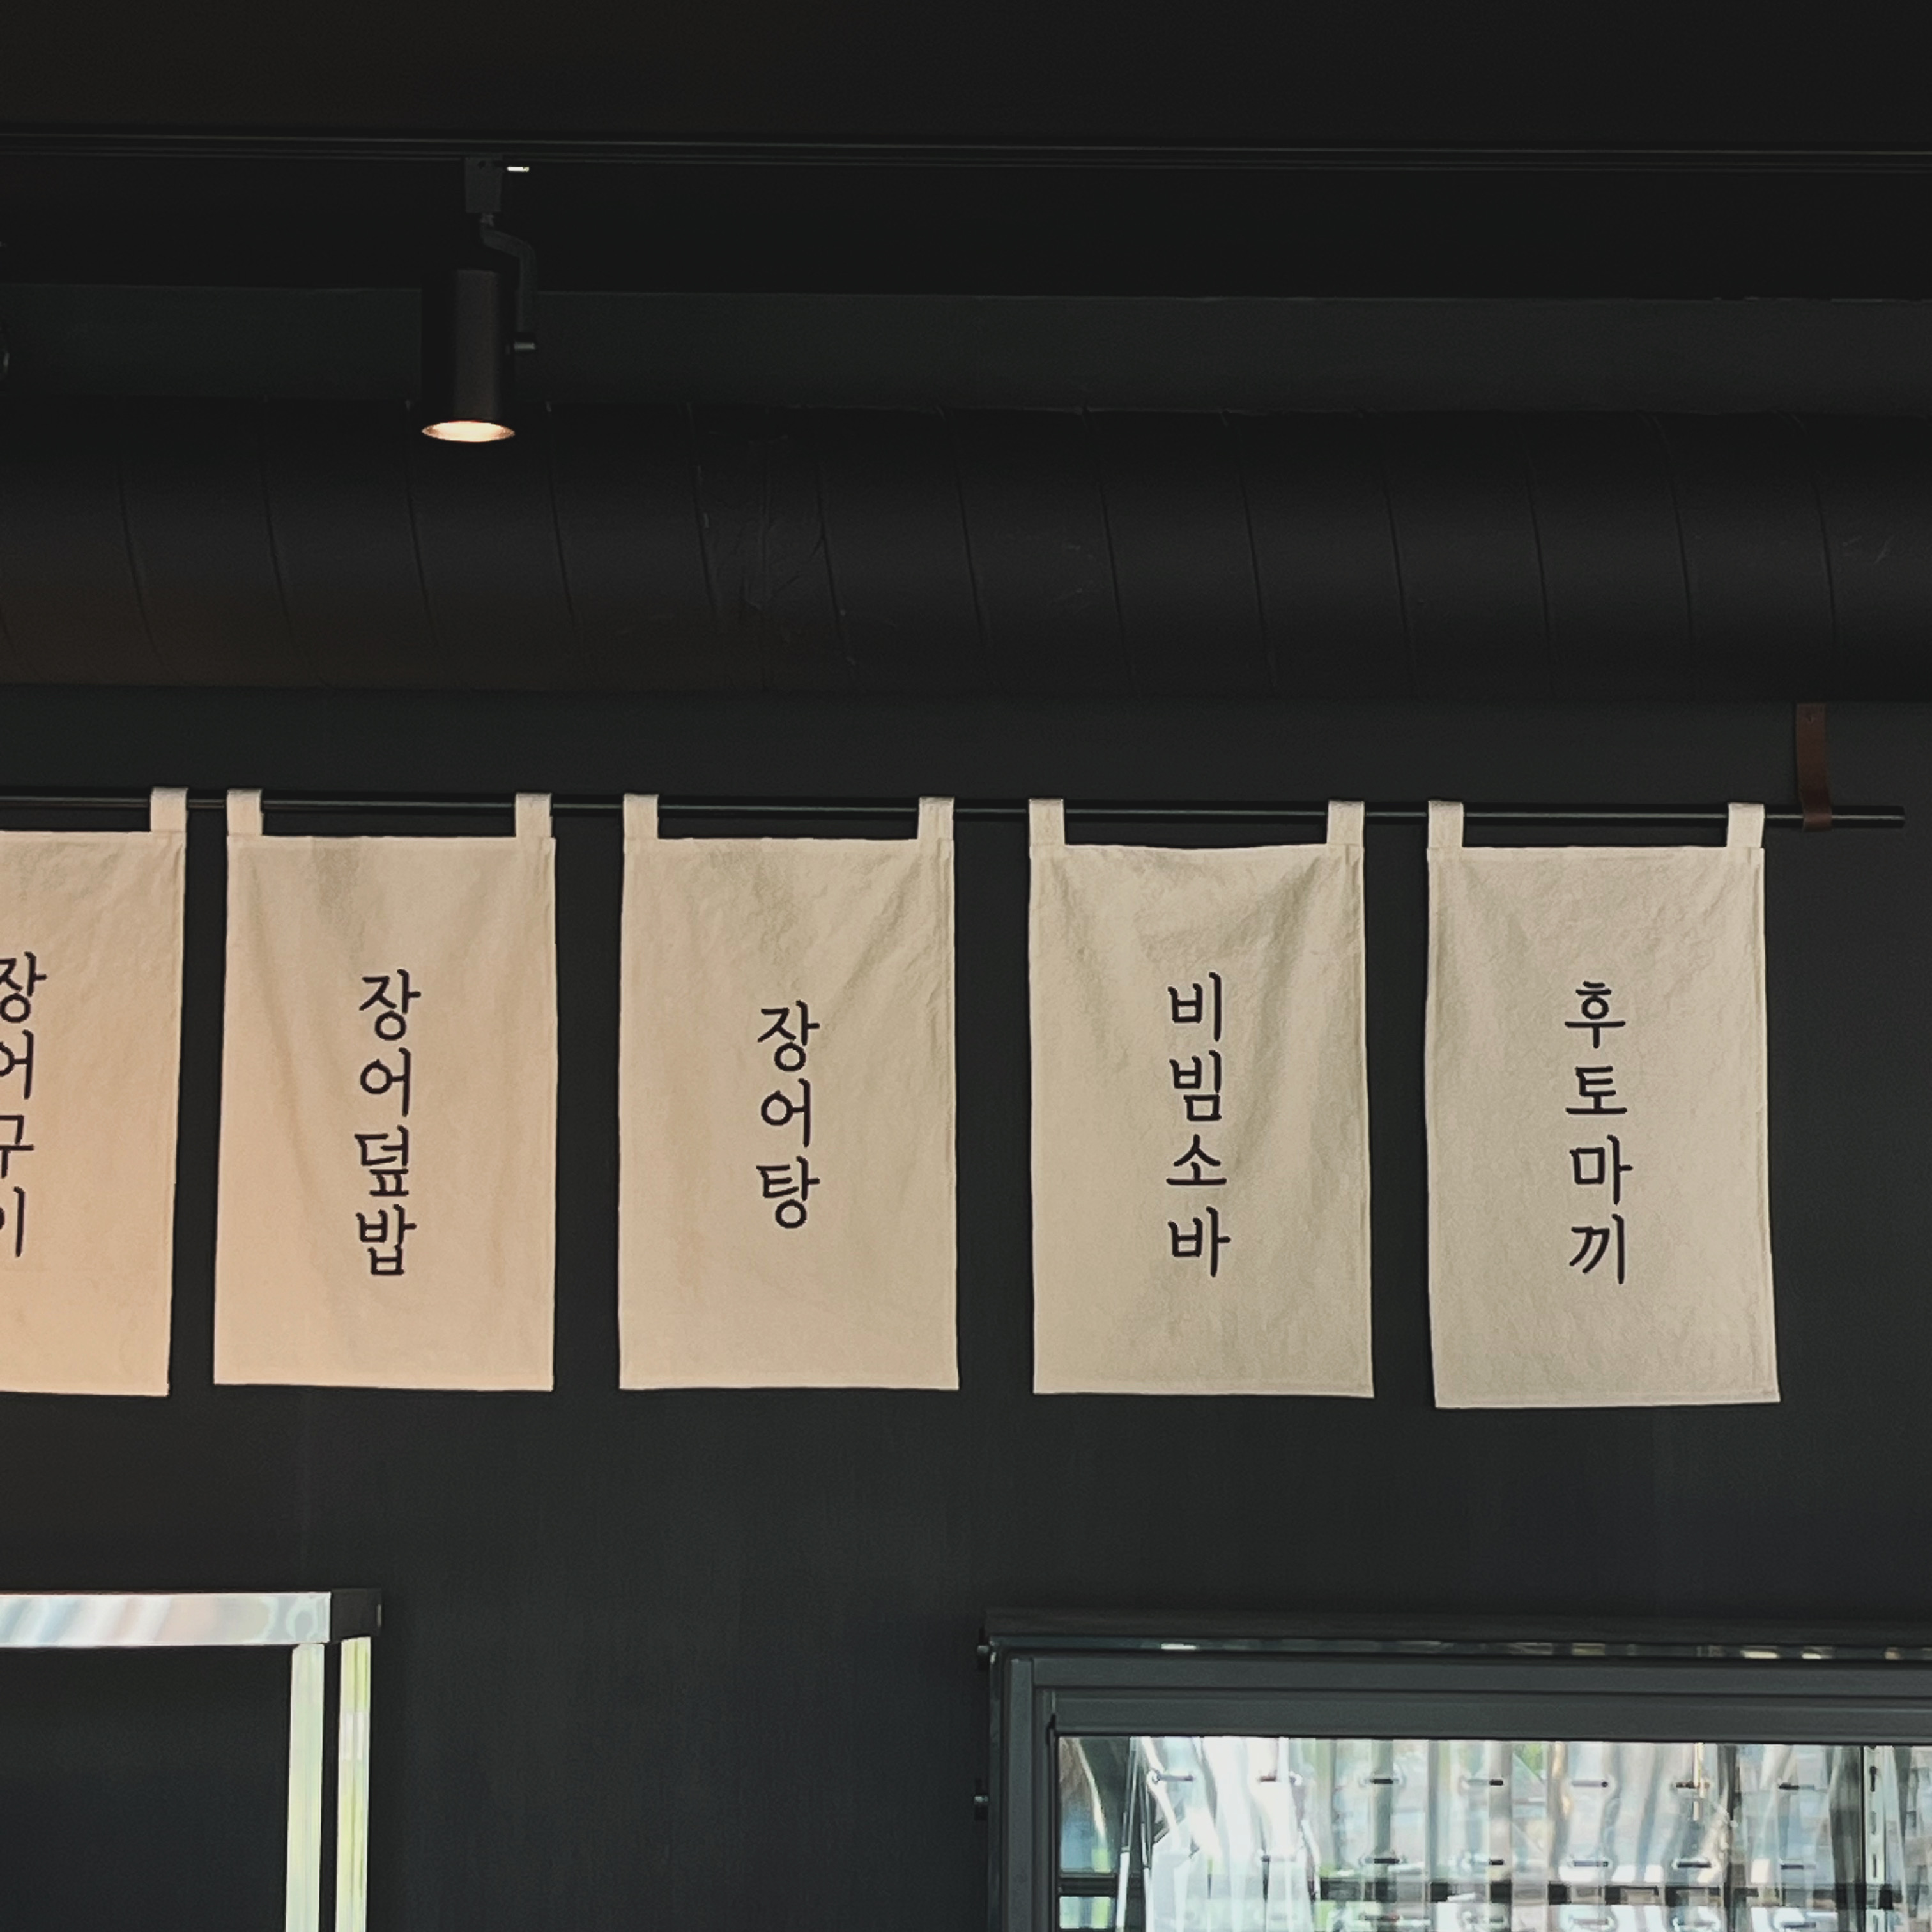 장어구이
장어덮밥
장어탕
비빔소바
후토마끼